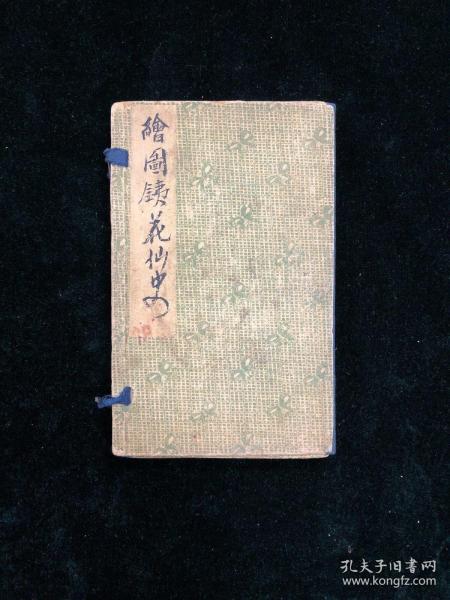 繪圖鐵花仙史
孔夫子旧书网
www.kongfz.com